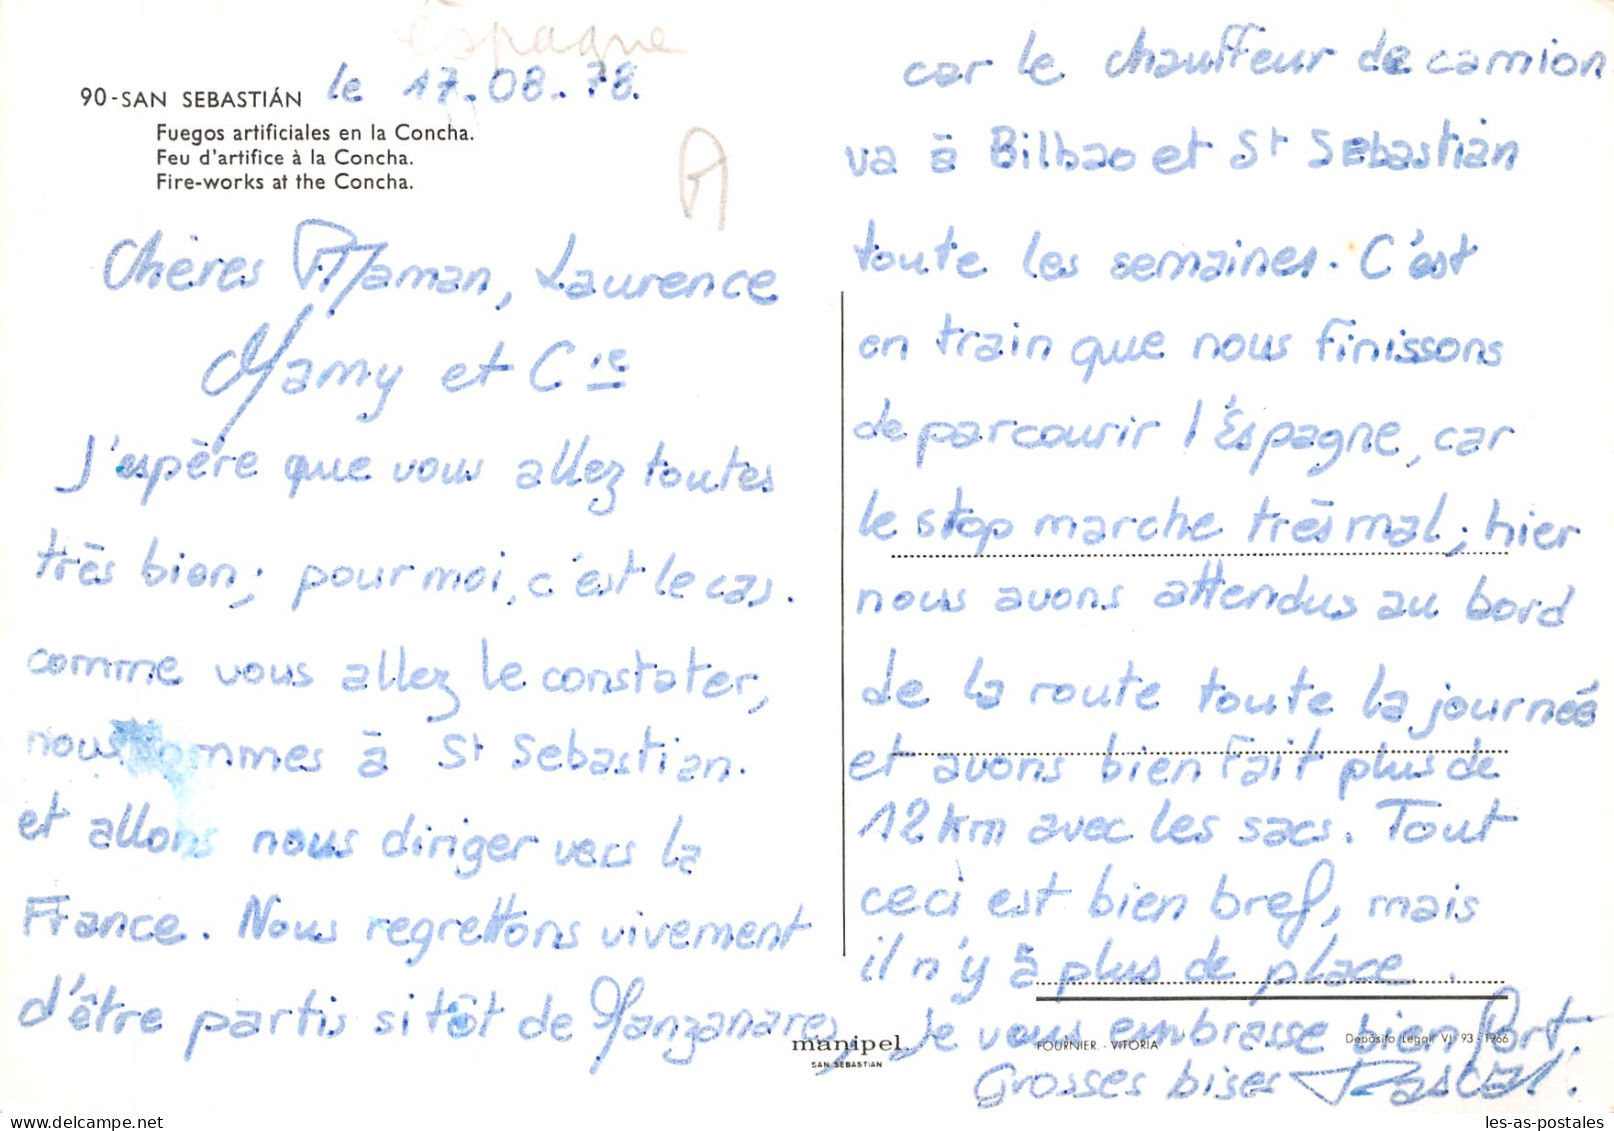 Espagne
90-SAN SEBASTIÁN le 17.08.78.
Fuegos artificiales en la Concha.
Feu d'artifice à la Concha.
Fire-works at the Concha.
Chères Maman, Laurence
Mamy et Cie
J'espère que vous allez toutes
très bien; pour moi, c'est le cas.
comme vous allez le constater,
nous sommes à St Sebastian.
et allons nous diriger vers la
France. Nous regrettons vivement
d'être partis si tôt de Manzanares,
car le chauffeur de camion
va à Bilbao et St Sebastiàn
toute les semaines. C'est
en train que nous finissons
de parcourir l'Éspagne, car
le stop marche très mal; hier
nous avons attendus au bord
de la route toute la journée
et avons bien fait plus de
12 km avec les sacs. Tout
ceci est bien bref, mais
il n'y à plus de place.
Je vous embrasse bien fort.
Grosses bises Pascal.
manipel
SAN SEBASTIAN
FOURNIER. - VITORIA
Depósito Legal: VI. 93 - 1966
les-as-postales